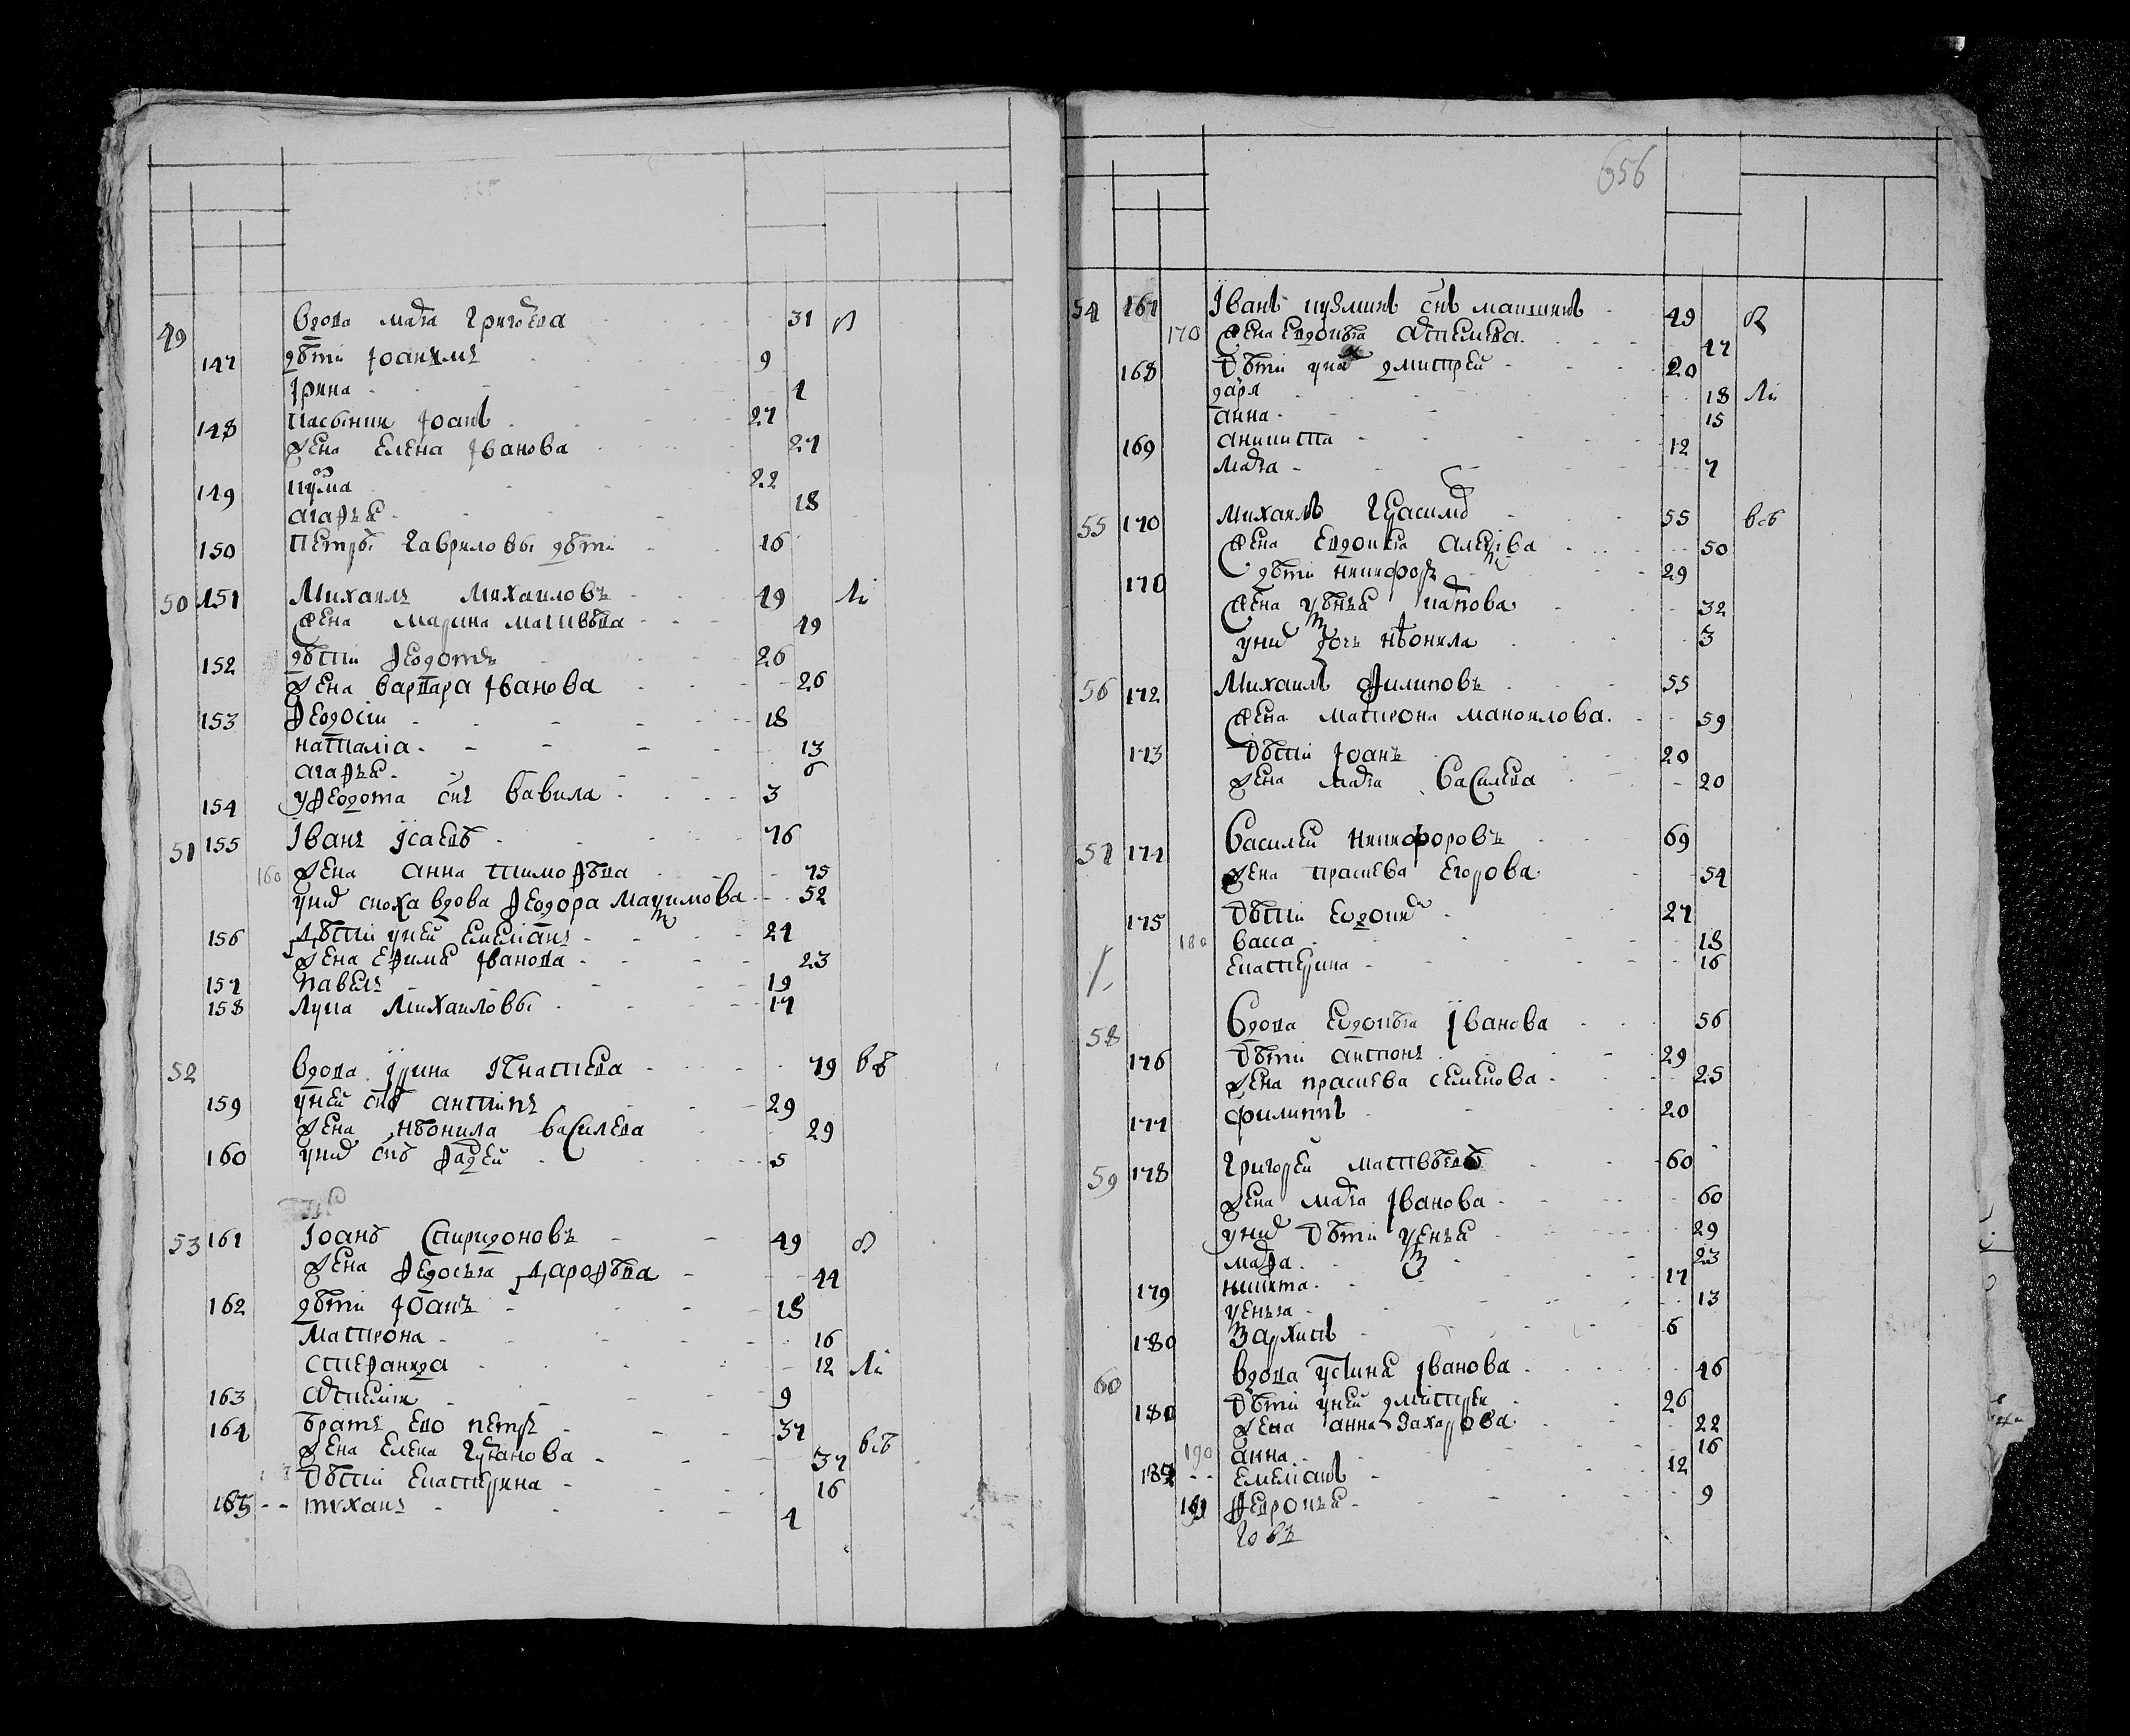 656
49 вдова марѳа григоева 31
147 дѣти Iоакимъ 9
Iрина 4
148 пасынкъ Iоанъ 27
жена Елена Iванова 27
149 кузма 22
агафья 18
150 Петръ Гавриловы дѣти 16
50 151 Михаилъ Михаиловъ 49
жена марина матвѣева 49
152 дѣти Ѳедотъ 26
жена варвара Iванова 26
153 Ѳедосiи 18
наталiа 13
агафья 6
154 у Ѳедота снъ вавила 3
51 155 Iванъ Исаевъ 76
160 жена анна тимоѳѣева 75
у нихъ сноха вдова Ѳедора Максимова 52
156 Дѣти у ней Емелiанъ 24
жена Ефимья Iванова 23
157 павелъ 19
158 Лука Михаиловы 17
52 вдова Iрина Игнатьева 79
159 у ней снъ антипъ 29
жена неонила василева 29
160 у нихъ снъ Ѳадей 5
53 161 Iоанъ Спиридоновъ 49
жена Ѳедосья Дароѳѣева 44
162 дѣти Iоанъ 18
матрона 16
стефанида 12
163 артемiи 9
164 братъ ево петръ 37
жена Елена 37
Дѣти Екатерина 16
165 тиханъ 4
54 167 Iванъ кузминъ снъ 49
170 жена Евдокѣя артемева 47
168 Дѣти у нихъ дмитрей 20
даря 18
анна 15
169 аникита 12
марѳа 7
55 170 михаилъ Герасимовъ 55
жена Евдокея алексѣева 50
170 дѣти никифоръ 29
жена Карпова 32
у нихъ дочь неонила 3
56 172 Михаилъ филиповъ 55
жена матрона маноилова 59
173 Дѣти Iоанъ 20
жена марѳа василева 20
57 174 василей никифоровъ 69
жена праскева Егорова 54
175 Дѣти Евдокимъ 27
180 васса 18
Екатерина 16
58 вдова Евдокѣя Iванова 56
176 Дѣти антонъ 29
жена праскева семенова 25
177 филиппъ 20
59 178 григорей матвѣевъ 60
жена марѳа Iванова 60
у нихъ Дѣти Ксенья 29
марѳа 23
179 никита 17
ксенья 13
180 архипъ 6
60 вдова устинья Iванова 46
180 Дѣти у ней дмитрей 26
жена анна Захарова 22
190 анна 16
182 Емелiанъ 12
191 Февронья 9